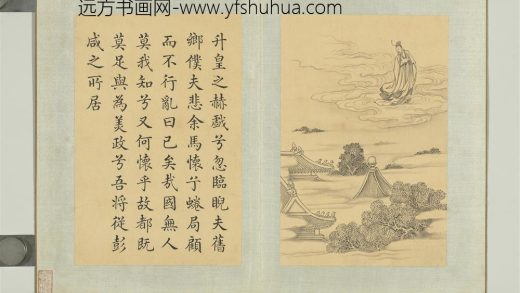 远方书画网-www.yfshuhua.com
升皇之赫戲兮忽臨睨夫舊
鄉僕夫悲余馬懷兮蜷局顧
而不行亂曰已矣哉國無人
莫我知兮又何懷乎故都既
莫足與為美政兮吾將從彭
咸之所居